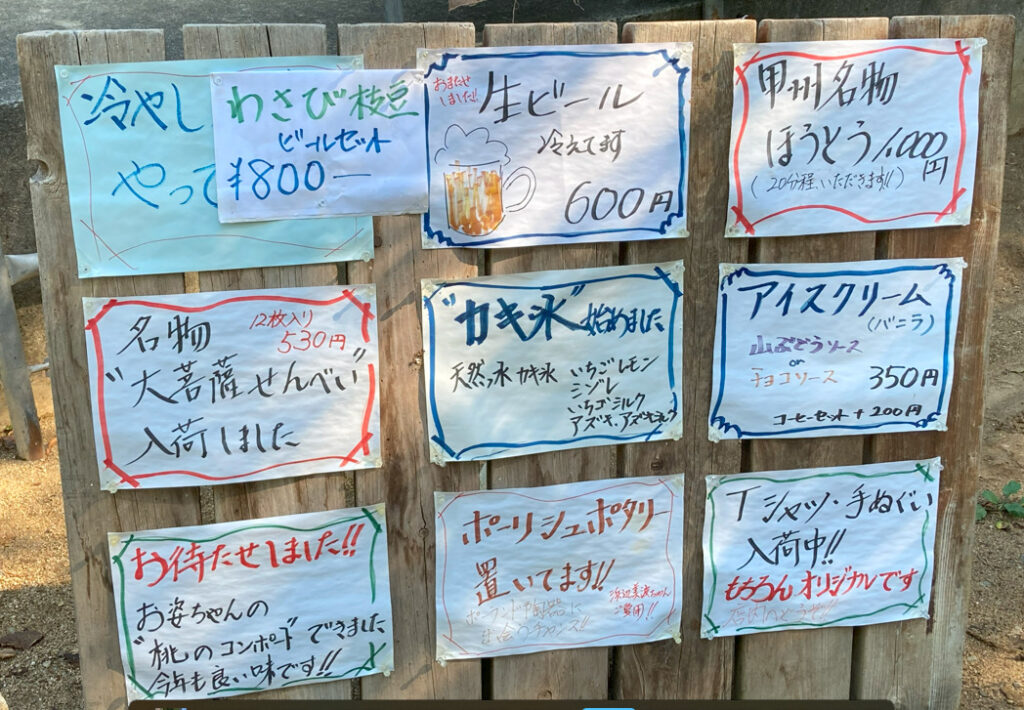 冷やし
やって
わさび枝豆
ビールセット
¥800―
おまたせ
しました!!
生ビール
冷えてます
600円
甲州名物
ほうとう1,000円
(20分程、いただきます!!)
名物
12枚入り
530円
"大菩薩せんべい"
入荷しました
"カキ氷"始めました
天然水カキ氷
いちご レモン
ミゾレ
いちごミルク
アズキ、アズキミルク
アイスクリーム
(バニラ)
山ぶどうソース
or
チョコソース
350円
コーヒーセット+200円
お待たせしました!!
お婆ちゃんの
"桃のコンポート"できました
今年も良い味です!!
ポーリシュポタリー
置いてます!!
ポーランド陶器に
出会うチャンス!!
ご愛用!!
Tシャツ・手ぬぐい
入荷中!!
もちろんオリジナルです
店内へどうぞ!!